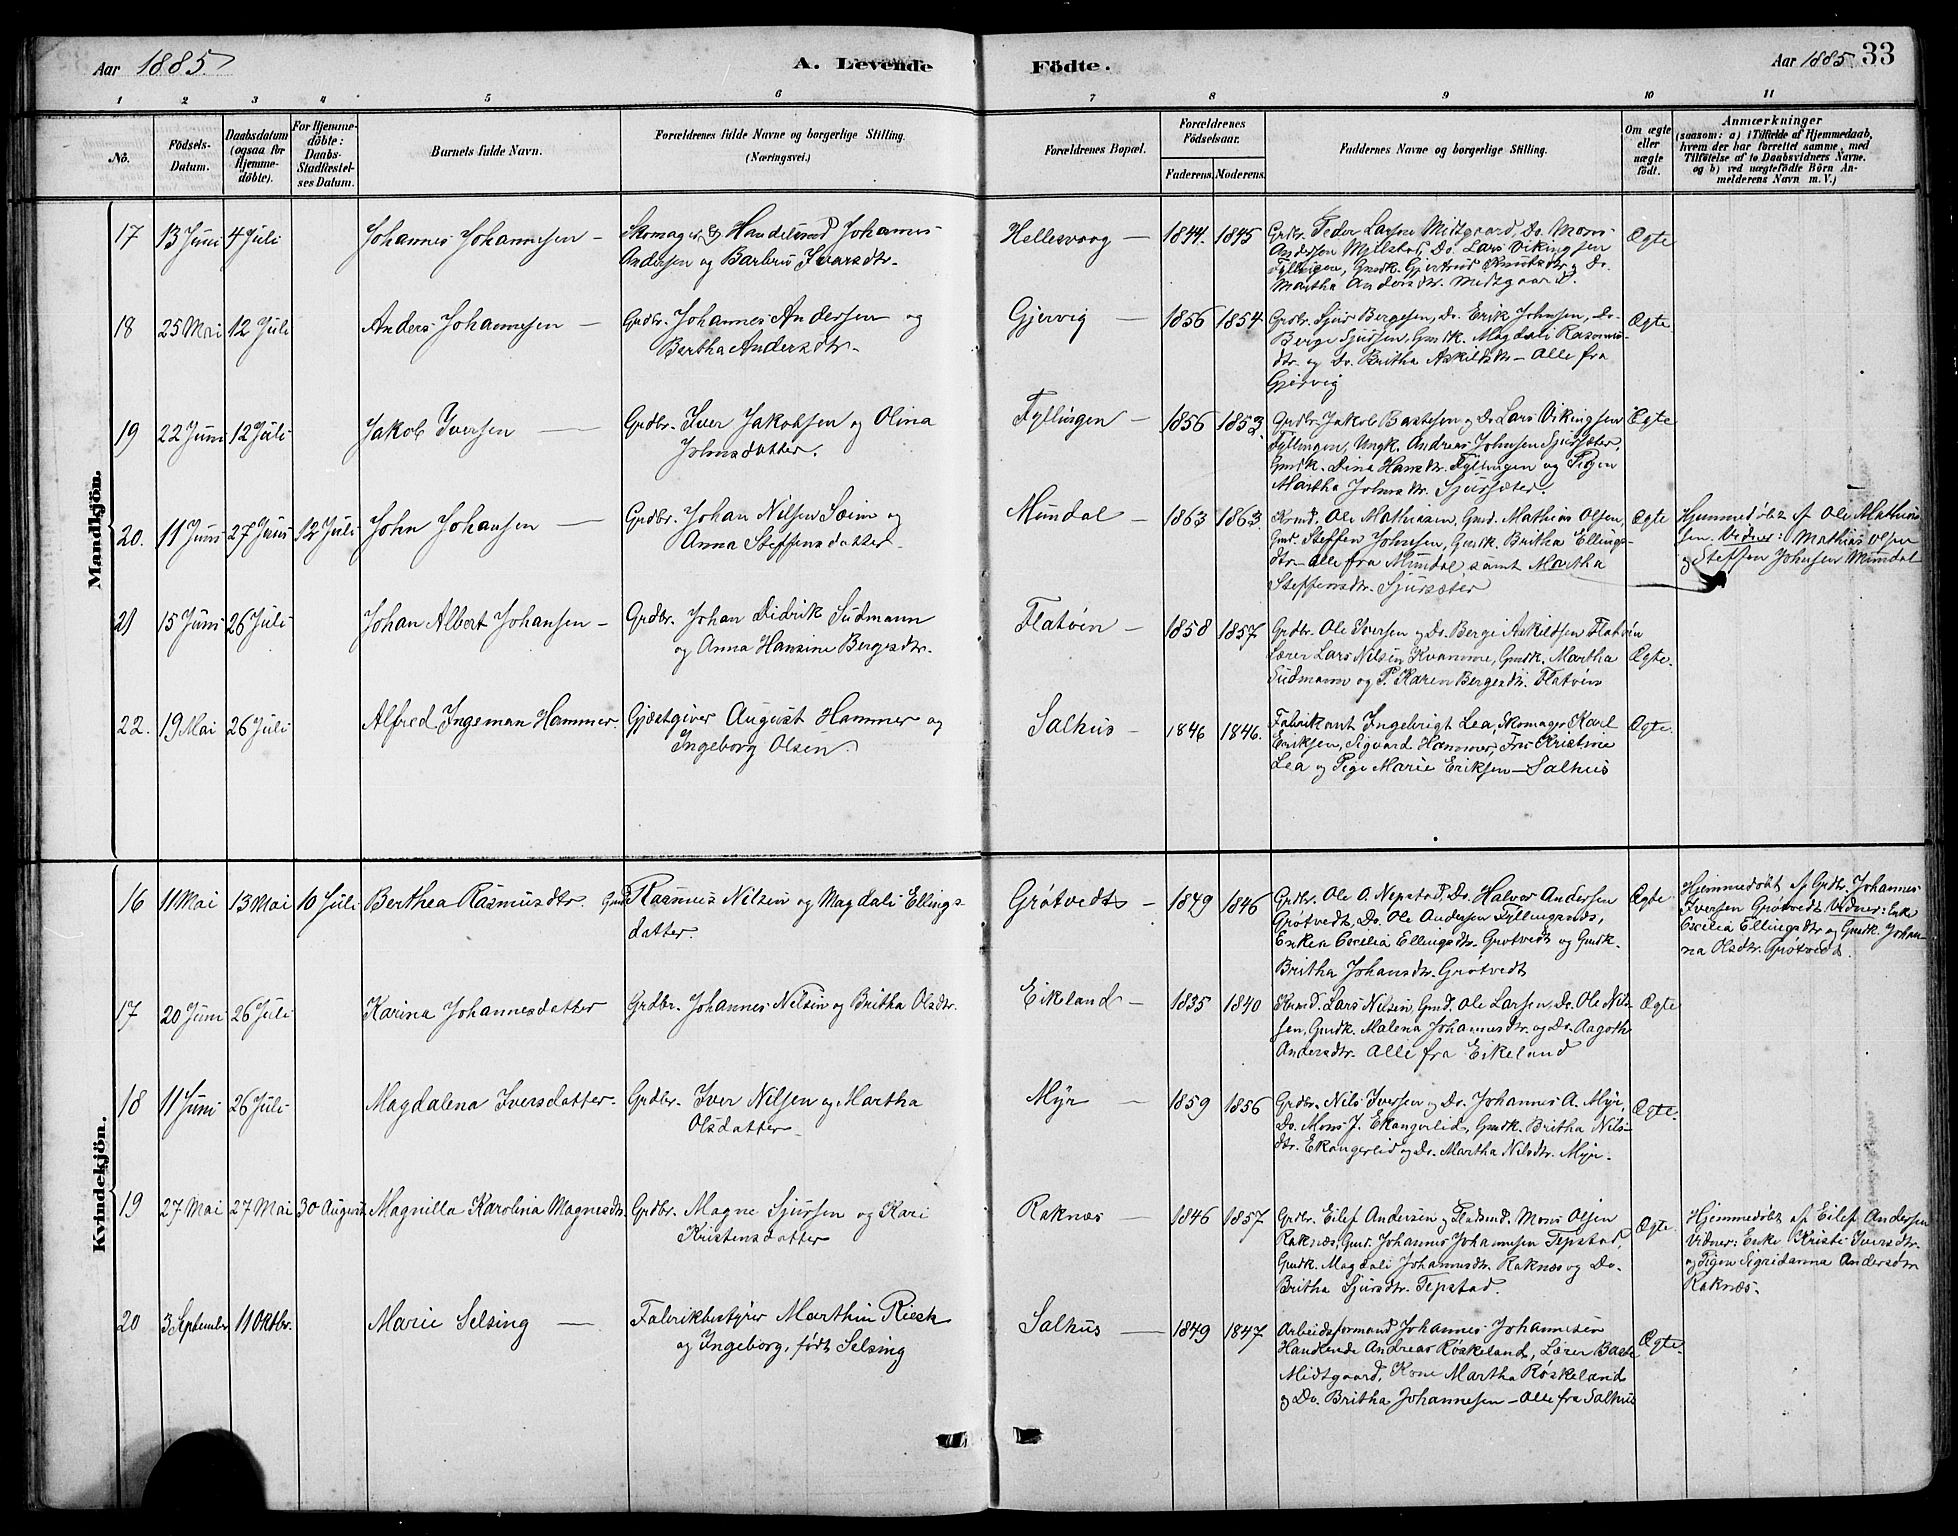 Aar 1885. A. Levende Födte. Aar 1885. 33
1 2 3 4 5 6 7 8 9 10 11
No. Födsels-Datum. Daabsdatum (ogsaa for Hjemme-döbte). For Hjemme-döbte: Daabs-Stadfæstel-ses Datum. Barnets fulde Navn. Forældrenes fulde Navne og borgerlige Stilling. (Næringsvei.) Forældrenes Bopæl. Forældrenes Födselsaar. Faderens. Moderens. Faddernes Navne og borgerlige Stilling. Om ægte eller uægte födt. Anmærkninger
(saasom: a) i Tilfælde af Hjemmedaab,
hvem der har forrettet samme, med
Tilföielse af to Daabsvidners Navne,
og b) ved uægtefödte Börn An-
melderens Navn m. V.)
Mandkjön.
17 13 Juni 4 Juli Johannes Johannesen – Skomager & Handelsmd Johannes
Andersen og Barbru Ivarsdtr. Hellesvaag – 1844. 1845 Grdbr. Peder Larsen Midtgaard, Do. Mons
Andersen Mjelstad, Do. Lars Vikingsen
Fyllingen, Gmdk. Gjertrud Knutsdtr. og Do.
Martha Andersdtr. Midtgaard. Ægte
18 25 Mai 12 Juli Anders Johannesen – Grdbr. Johannes Andersen og
Bertha Andersdtr. Gjervig – 1856 1854. Grdbr. Sjur Bergesen, Do. Erik Johnsen, Do.
Berge Sjursen, Gmdk. Magdali Rasmus-
dtr. og Do. Britha Askildsdtr – Alle fra
Gjervig Ægte
19 22 Juni 12 Juli Jakob Iversen – Grdbr. Iver Jakobsen og Olina
Johnsdatter. Fyllingen – 1856 1853. Grdbr. Jakob Bastesen og Do Lars Vikingsen
Fyllingen, Ungk. Andreas Johnsen Sjursæter,
Gmdk. Dina Hansdtr. Fyllingen og Pigen
Martha Johnsdtr. Sjursæter. Ægte
20. 11 Juni 27 Juni 12 Juli John Johansen – Grdbr. Johan Nilsen Sæim og
Anna Steffensdatter. Mundal – 1863 1863. Ole Mathiasen, Gmd. Mathias Olsen,
Gmd. Steffen Johnsen, Gmdk. Britha Ellings-
dtr – alle fra Mundal, samt Martha
Steffensdtr. Sjursæter Ægte Hjemmedøbt af Ole Mathias-
sen. Vidner: Mathias Olsen
og Steffen Johnsen Mundal
21 15 Juni 26 Juli Johan Albert Johansen – Grdbr. Johan Didrik Sudmann
og Anna Hansine Bergesdtr. Flatøen – 1858 1857 Grdbr. Ole Iversen og Do. Berge Askildsen Flatøen
Lærer Lars Nilsen Kvamme, Gmdk. Martha
Sudmann og P. Karen Bergesdtr. Flatøen Ægte.
22. 19 Mai 26 Juli Alfred Ingeman Hammer. Gjæstgiver August Hammer og
Ingeborg Olsen. Salhus – 1846 1846. Fabrikant Ingebrigt Lea, Skomager Karl
Eriksen, Sigvard Hammer, Fru Kristine
Lea og Pige Marie Eriksen – Salhus Ægte.
Kvindekjön.
16 11 Mai 13 Mai 10 Juli Berthea Rasmusdtr. Gmd. Rasmus Nilsen og Magdali Ellings-
datter. Grøtvedt – 1849 1846 Grdbr. Ole O. Nepstad, Do. Halvor Andersen
Grøtvedt, Do. Ole Andersen Fyllingsnæs,
Enken Cecilia Ellingsdtr. Grøtvedt og Gmdk.
Britha Johansdtr. Grøtvedt Ægte Hjemmedøbt af Grdbr. Johannes
Iversen Grøtvedt. Vidner: Enke
Cecilia Ellingsdtr og Gmdk. Johan-
na Olsdtr. Grøtvedt.
17 20 Juni 26 Juli Karina Johannesdatter Grdbr. Johannes Nilsen og Britha Olsdtr. Eikeland – 1835 1840 Lars Nilsen, Gmd. Ole Larsen, Do. Ole Nil-
sen, Gmdk. Malena Johannesdtr. og Do. Aagothe
Andersdtr. Alle fra Eikeland Ægte
18 11 Juni 26 Juli Magdalena Iversdatter. Grdbr. Iver Nilsen og Martha
Olsdatter – Myr – 1859 1856 Grdbr. Nils Iversen og Do. Johannes A. Myr,
Do. Mons J. Ekangerlid, Gmdk. Britha Nils-
dtr. Ekangerlid og Do. Martha Nilsdtr. Myr. Ægte.
19 27 Mai 27 Mai 30 August Magnilla Karolina Magnesdtr. Grdbr. Magne Sjursen og Kari
Kristensdatter Raknæs – 1846 1857 Grdbr. Eilef Andersen og Mons Olsen
Raknæs, Gmd. Johannes Johannesen Tepstad,
Gmdk. Magdali Johannesdtr. Raknæs og Do.
Britha Sjursdtr. Tepstad. Ægte. Hjemmedøbt af Eilef Andersen
Vidner: Enke Kristi Iversdtr.
og Pigen Sigridanna Andersdtr
Raknæs.
20 3 September 11 Oktbr. Marie Selsing – Fabrikbestyrer Marthin Rieck
og Ingeborg, født Selsing Salhus – 1849 1847 Arbeidsformand Johannes Johannesen
Handlende Andreas Røskeland, Lærer Baste
Midtgaard, Kone Martha Røskeland
og Do. Britha Johannesen – Alle fra Salhus Ægte.